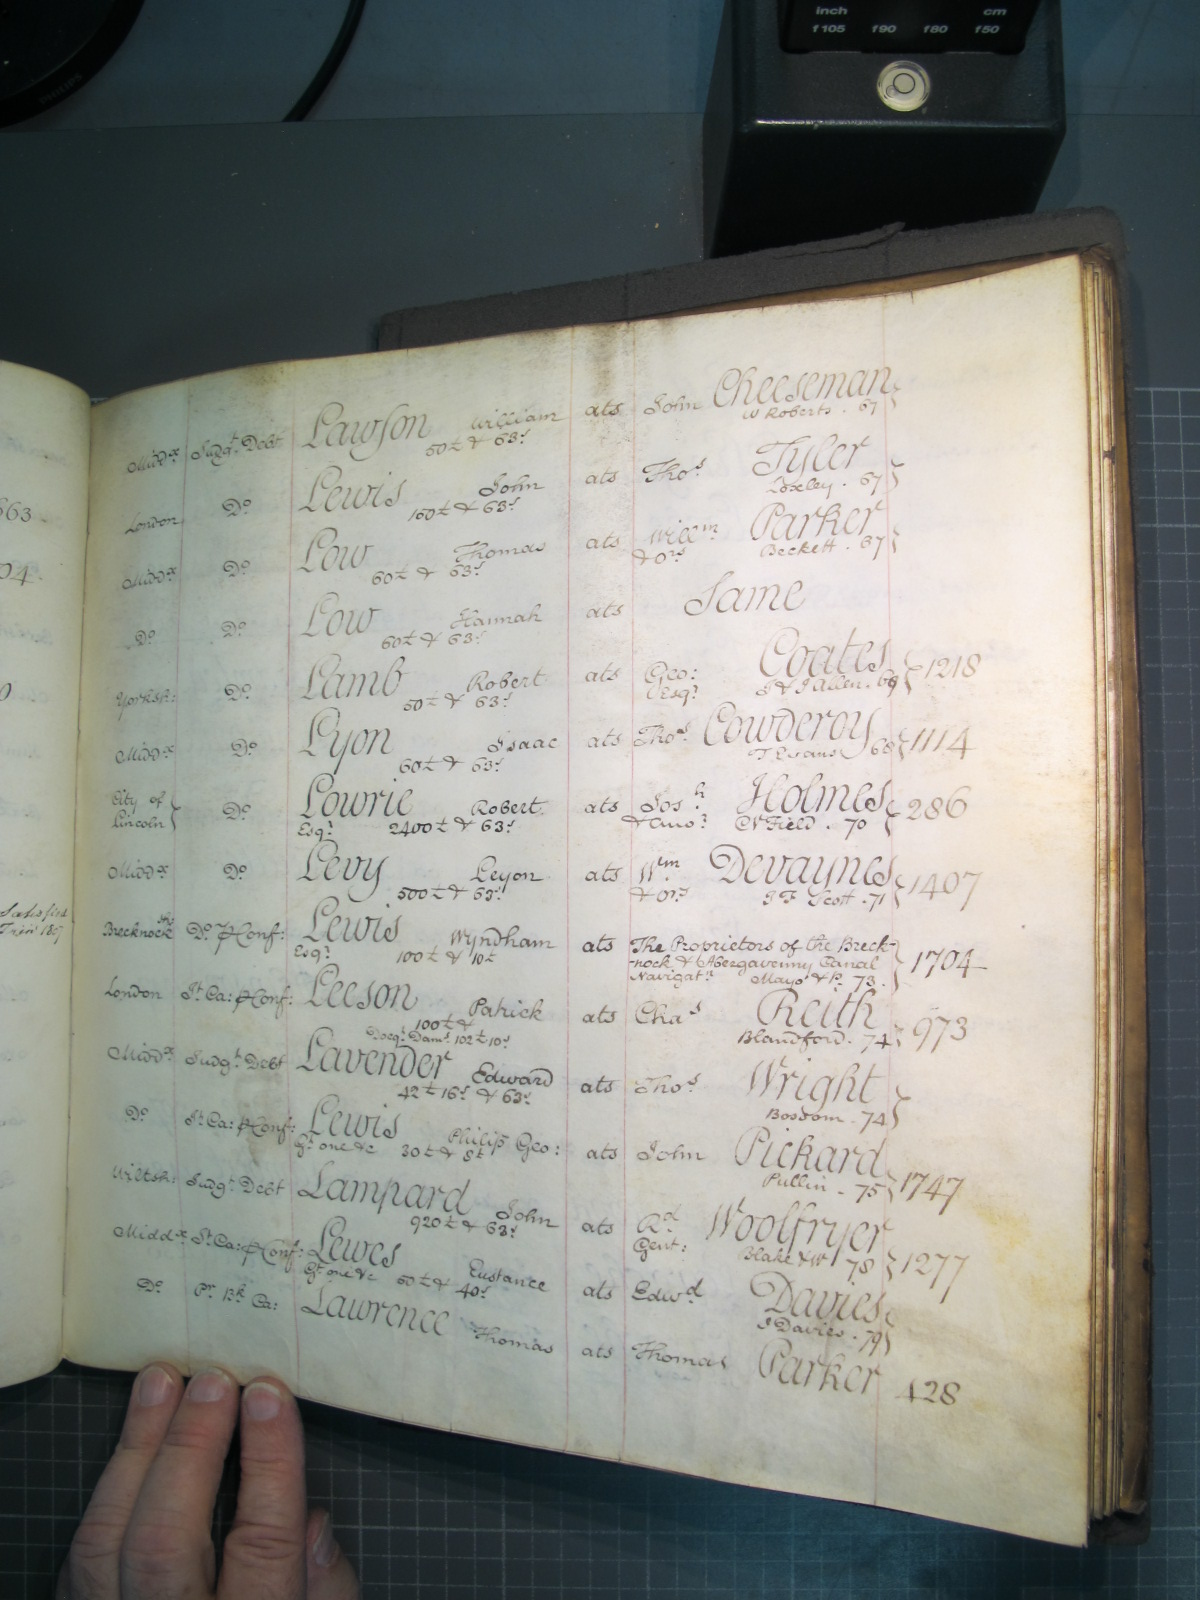 inch cm
f105 f90 f80 f50
PHILIPS
663
04.
0
Satisfied
Midd.x Judg.t Debt Lawson William ats John Cheeseman
50£ & 63s W Roberts . 67
London D.o Lewis John ats Tho.s Tyler
160£ & 63s Loxley . 67
Midd.x D.o Low Thomas ats Will.m Parker
60£ & 63s & ors Beckett . 67
D.o D.o Low Hannah ats Same
60£ & 63s
Yorksh: D.o Lamb Robert ats Geo: Coates 1218
50£ & 63s Esq.r J & J Allen . 69
Midd.x D.o Lyon Isaac ats Tho.s Cowderoy 1114
60£ & 63s T Evans 68
City of Lincoln D.o Lowrie Robert ats Jos.h Holmes 286
Esq.r 2400£ & 63s & ano.r C N Field . 70
Midd.x D.o Levy Leyon ats W.m Devaynes 1407
500£ & 63s & ors J F Scott . 71
Brecknock D.o & Conf: Lewis Wyndham ats The Proprietors of the Breck- 1704
Esq.r 100£ & 10£ -nock & Abergavenny Canal
Navigat.n Mayo & P. 73.
London St Ca: & Conf: Leeson Patrick ats Cha.s Reith 973
100£ & Blandford . 74
Docq.t Dam.s 102£ 10s
Midd.x Judg.t Debt Lavender Edward ats Tho.s Wright
42£ 16s & 63s Bosdom . 74
D.o St Ca: & Conf: Lewis Philip Geo: ats John Pickard 1747
G.t one &c 30£ & 8£ Pullin . 75
Wiltsh: Judg.t Debt Lampard John ats R.d Woolfryer 1277
920£ & 63s Gent: Blake & W 78
Midd.x St Ca: & Conf: Lewes Eustance ats Edw.d Davies
G.t one &c 50£ & 40s J Davies . 79
D.o P.r B.k Ca: Lawrence Thomas ats Thomas Parker 428